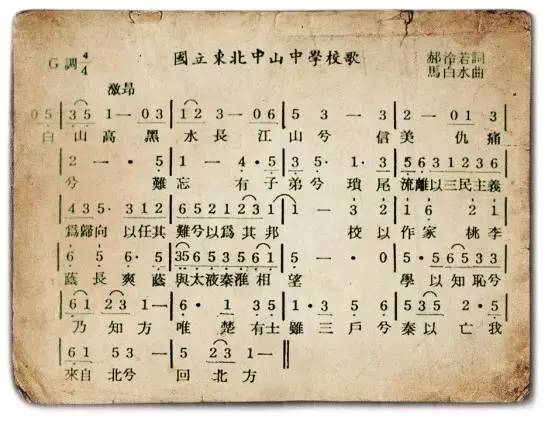 G調4/4 國立東北中山中學校歌 郝泠若詞
馬白水曲
激昂
0 5 | 3 5 1 — 0 3 | 1 2 3 — 0 6 | 5 3 — 3 | 2 — 0 1 3
白山高黑水長江山兮信美仇痛
2 — · 5 | 1 — 4 · 5 | 3 5 · 1 · 3 | 5 6 3 1 2 3 6
兮難忘有子弟兮瑣尾流離以三民主義
4 3 5 · 3 1 2 | 6 5 2 1 2 3 1 | 1 — 3 2 | 1 6 · 2 1
爲歸向以任其難兮以爲其邦校以作家桃李
6 5 6 · 5 | 3 5 6 5 3 5 1 6 | 5 — — · | 5 · 6 5 3 3
蔭長爽蔭與太液秦淮相望學以知恥兮
6 1 2 3 1 — | 6 · 1 3 5 | 1 · 3 5 6 | 5 · 2 3 5
乃知方唯楚有士雖三戶兮秦以亡我
6 1 5 3 — | 5 2 3 1 —
來自北兮回北方